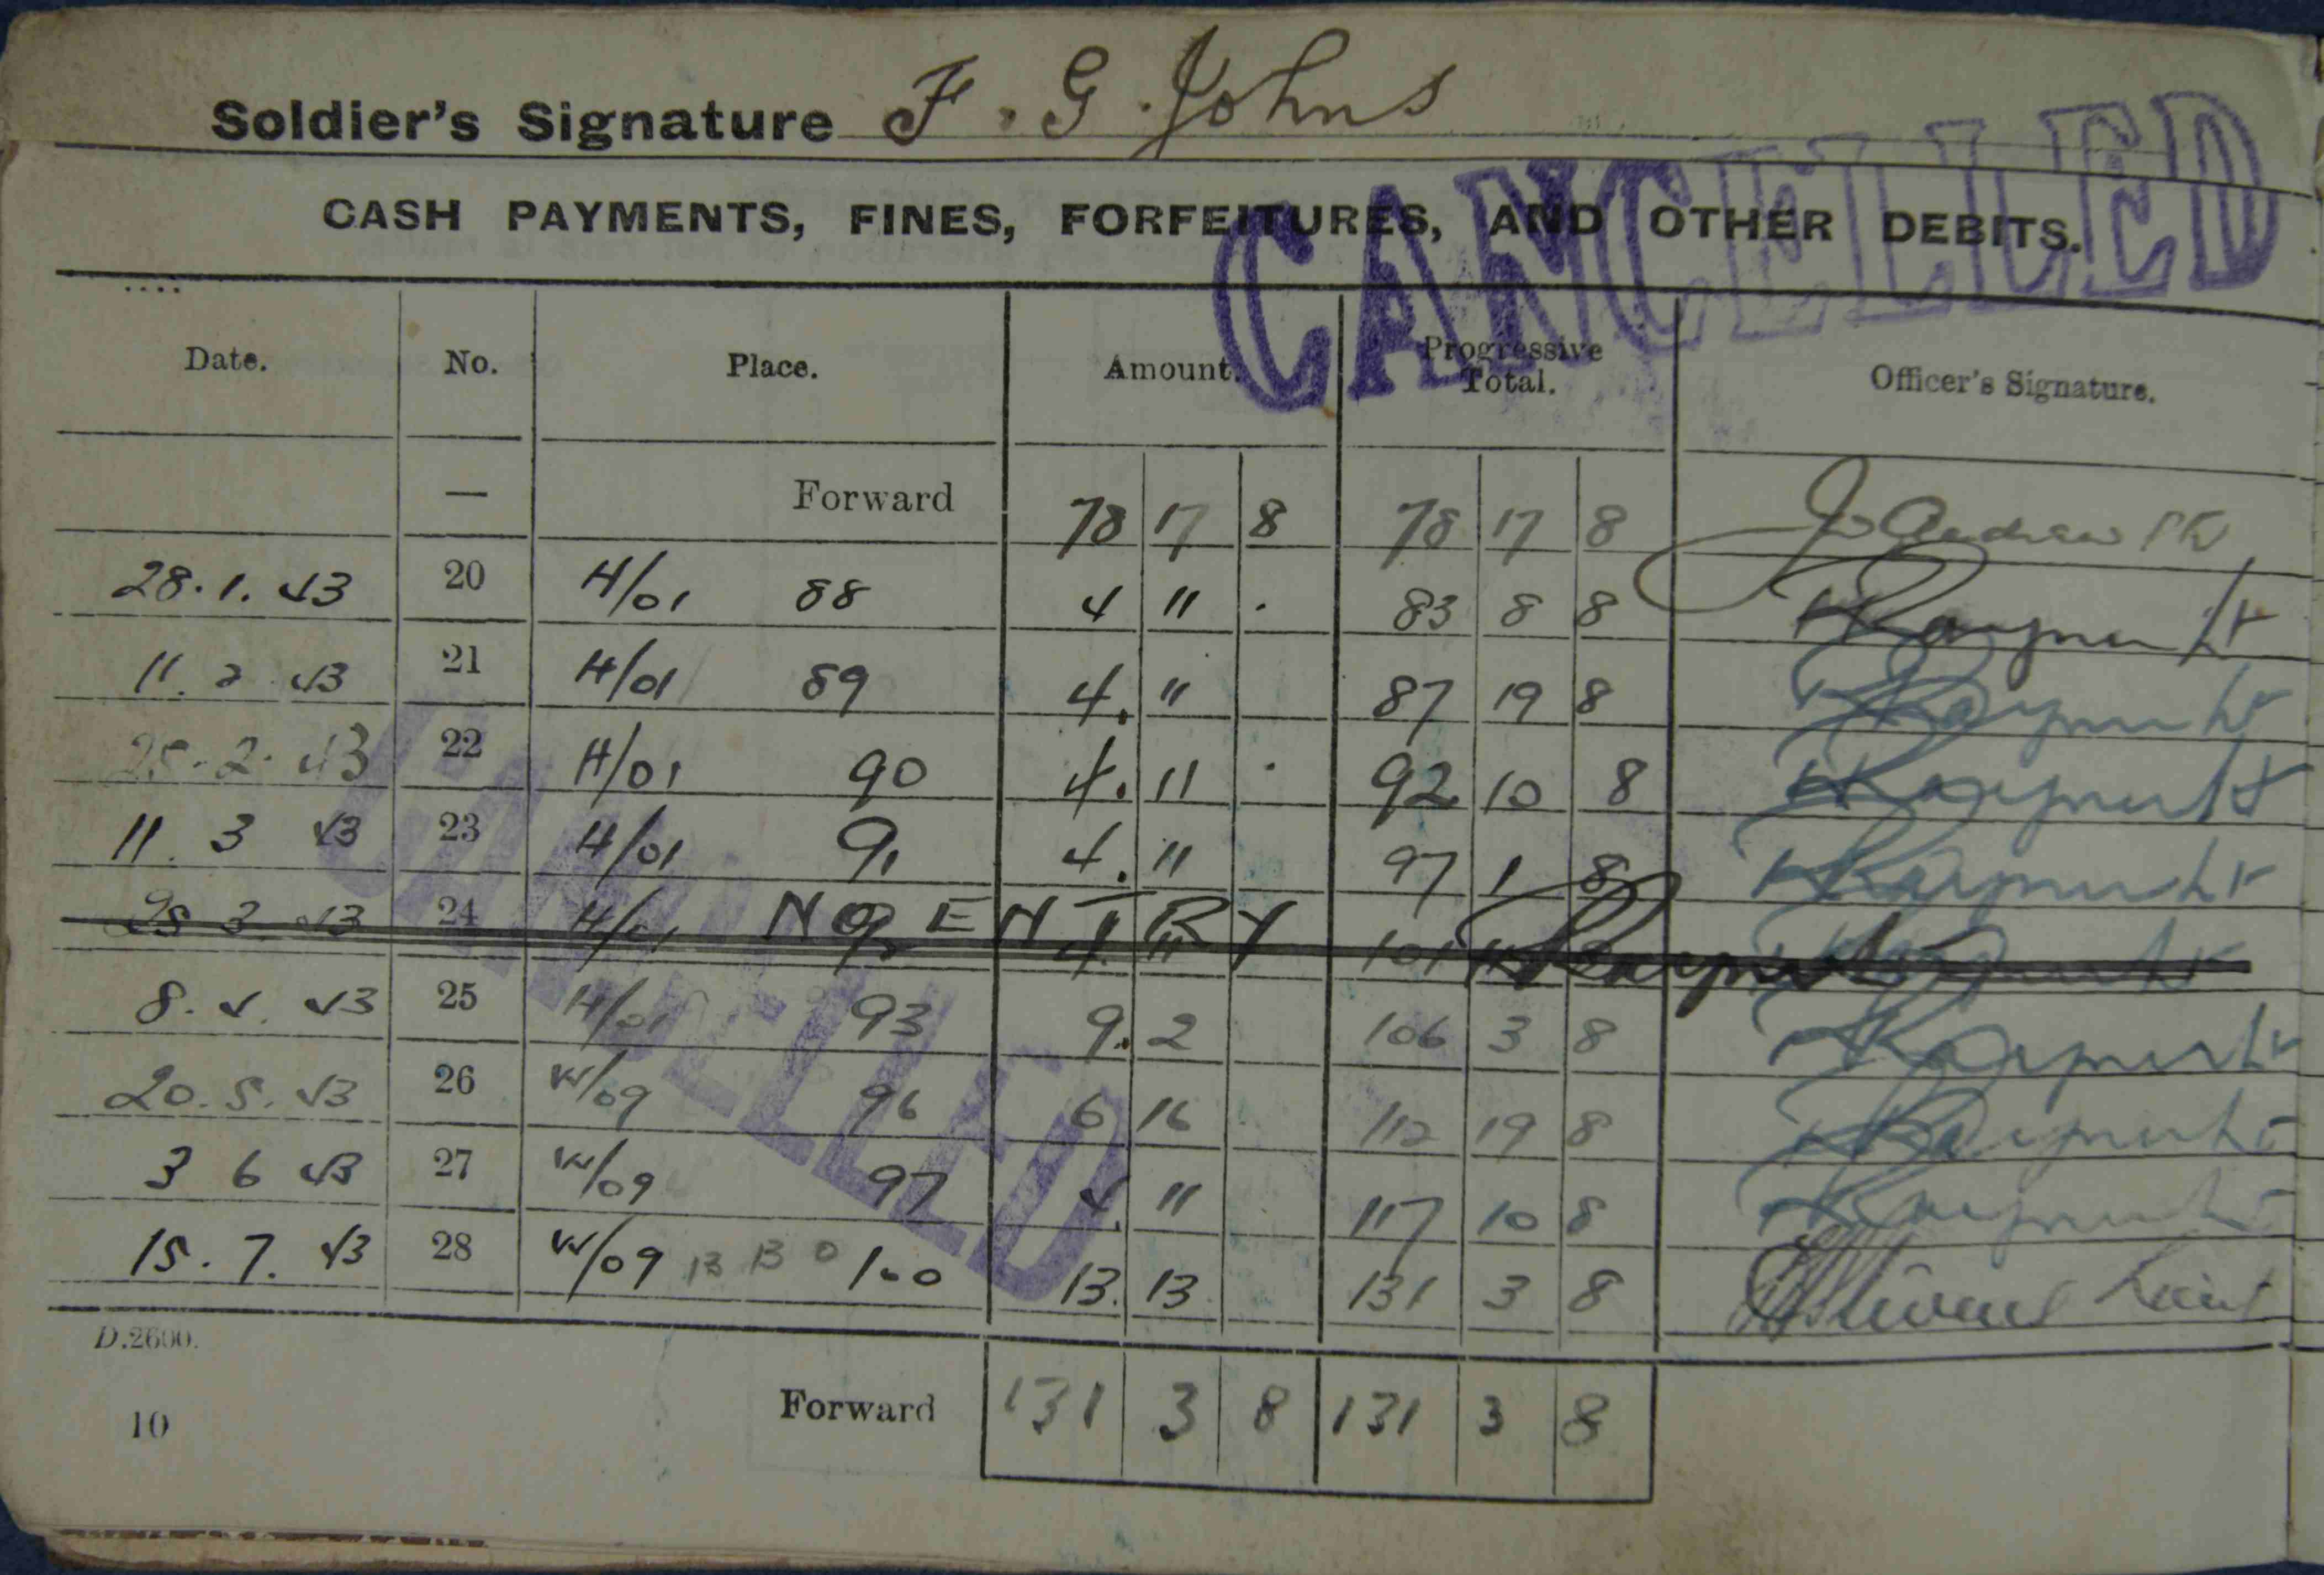 Soldier's Signature F. G. Johns
CANCELLED
CASH PAYMENTS, FINES, FORFEITURES, AND OTHER DEBITS.
Date. No. Place. Amount. Progressive Total. Officer's Signature.
— Forward 78 17 8 78 17 8
28.1.43 20 H/01 88 4 11 . 83 8 8
11.2.43 21 H/01 89 4. 11 87 19 8
25.2.43 22 H/01 90 4. 11 . 92 10 8
11 3 43 23 H/01 91 4. 11 97 1 8
25 3 43 24 H/01 92 NO ENTRY 4. 11 101
8.4.43 25 H/01 93 9. 2 106 3 8
20.5.43 26 W/09 96 6 16 112 19 8
3 6 43 27 W/09 97 4. 11 117 10 8
15.7.43 28 W/09 13 13 0 100 13. 13 131 3 8
CANCELLED
D.2600.
Forward 131 3 8 131 3 8
10